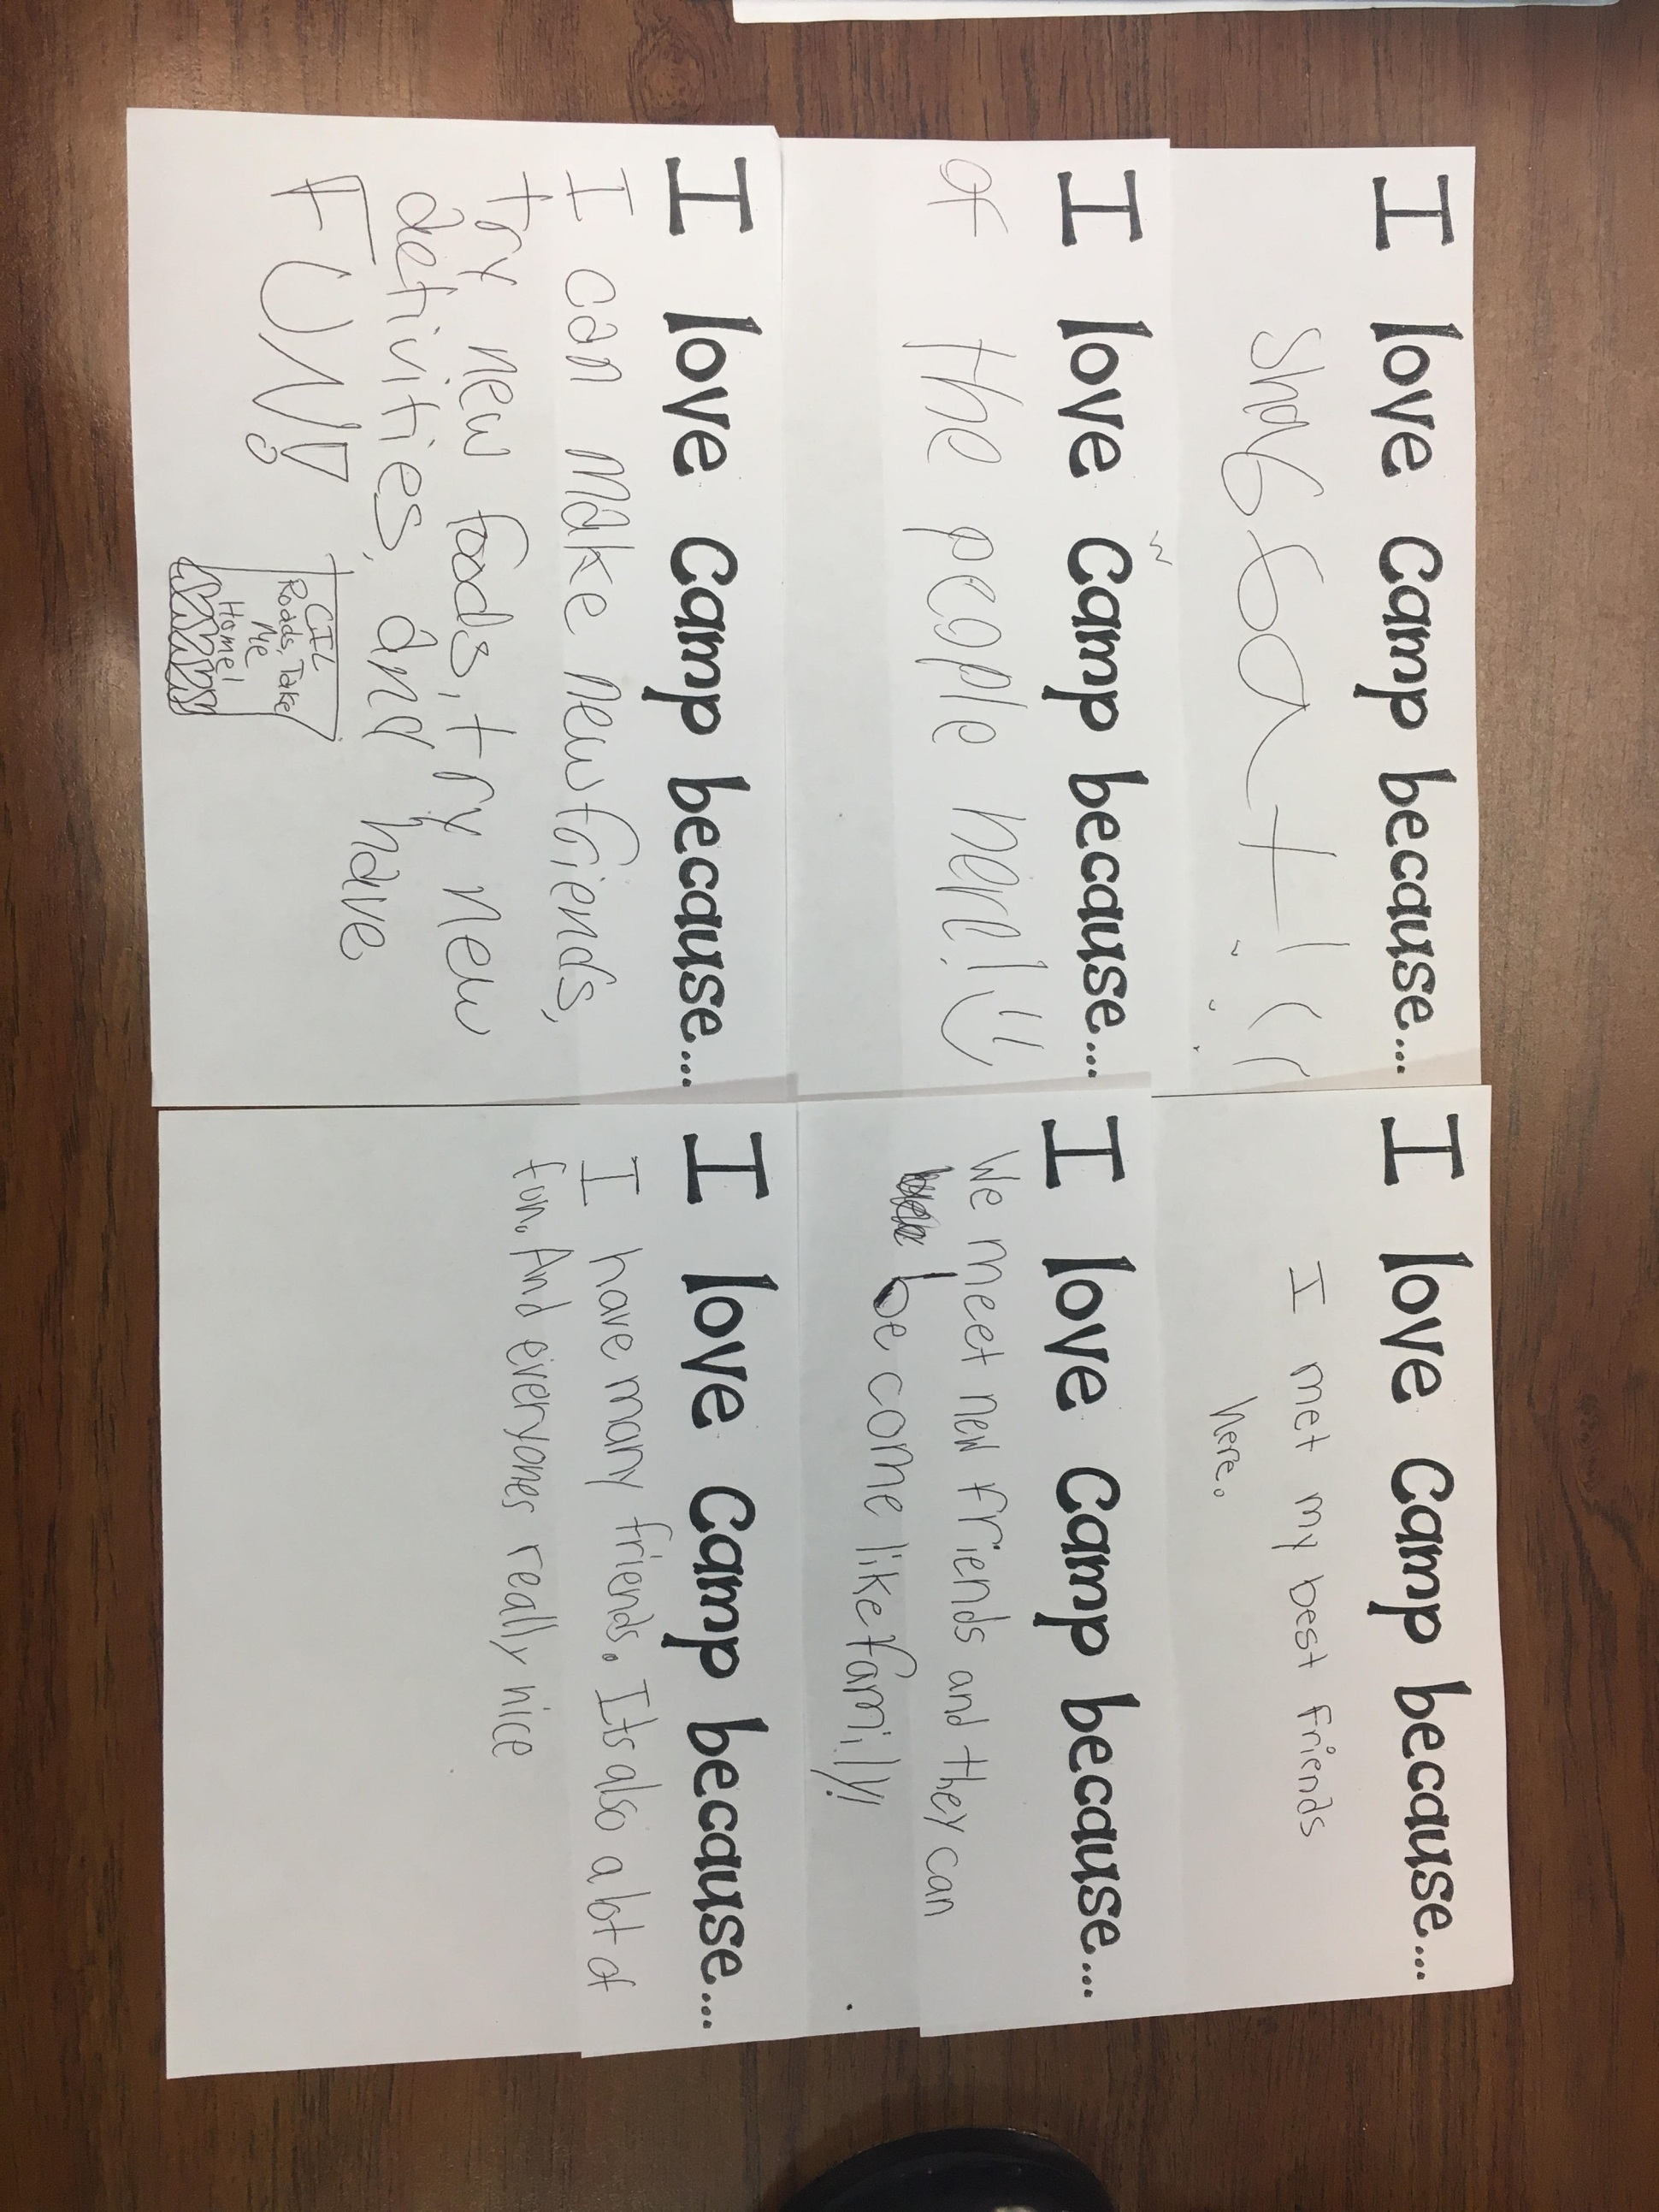 I love Camp because...
Shabbat!
I love Camp because...
of the people here!
I love Camp because...
I can make new friends,
try new foods, try new
activities, and have
FUN!
CIL
Roads, Take
Me
Home!
I love Camp because...
I met my best friends
here.
I love Camp because...
We meet new friends and they can
be come like family!!
I love Camp because...
I have many friends. Its also a lot of
fun. And everyones really nice